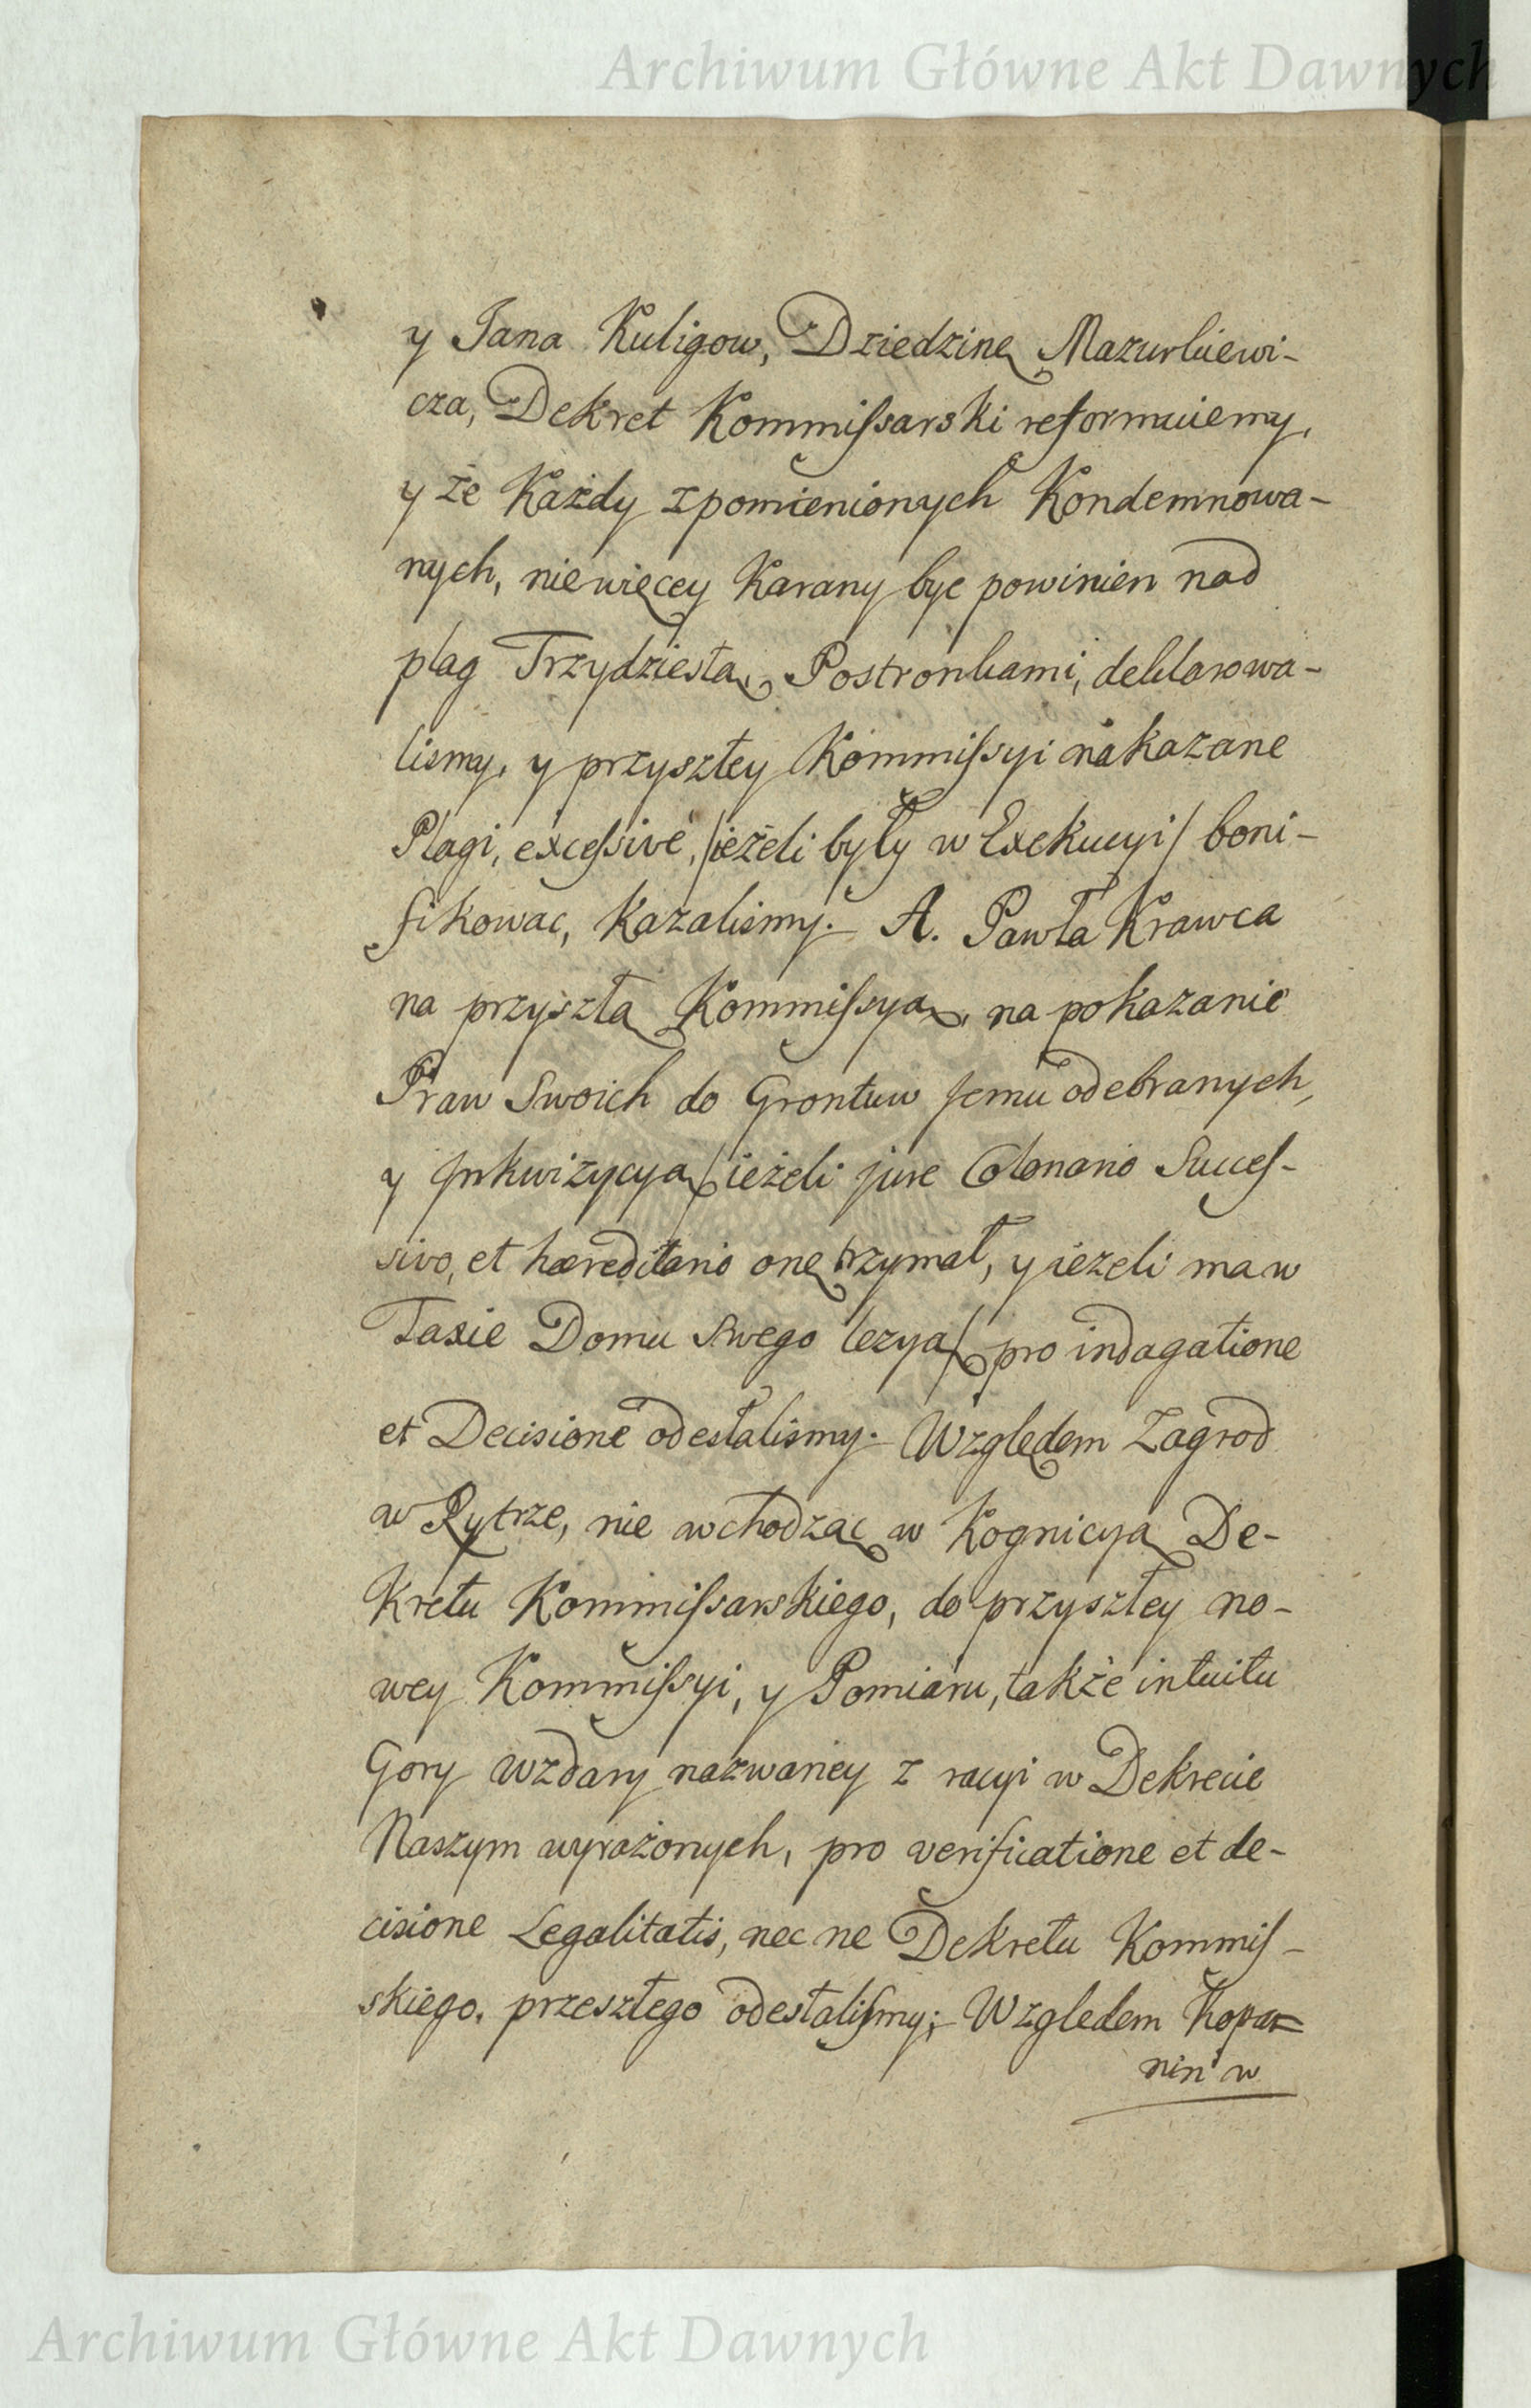 Archiwum Główne Akt Dawnych
y Jana Kuligow, Dziedzinę Mazurkiewi-
cza, Dekret Kommiſsarski reformuiemy,
y że Każdy z pomienionych Kondemnowa-
nych, nie więcey Karany byc powinien nad
plag Trzydziestą, Postronkami, deklarowa-
lismy, y przyszłey Kommiſsyi nakazane
Plagi, exceſsive, /ieżeli były w Exekucyi/ boni-
fikowac, Kazalismy. A. Pawła Krawca
na przyszłą Kommiſsyą, na pokazanie
Praw Swoich do Grontuw Jemu odebranych,
y Jnkwizycyą /ieżeli jure Colonario Succeſ-
sivo, et hæreditario onę trzymał, y ieżeli ma w
Taxie Domu Swego lezyą/ pro indagatione
et Decisione odesłalismy. Względem Zagrod
w Rytrze, nie wchodząc w Kognicyą De-
Kretu Kommiſsarskiego, do przyszłey no-
wey Kommiſsyi, y Pomiaru, także intuitu
Gory Wzdary nazwaney z racyi w Dekrecie
Naszym wyrażonych, pro verificatione et de-
cisione Legalitatis, nec ne Dekretu Kommiſ-
skiego, przeszłego odesłaliſmy; Wzgledem Kopa=
nin w
Archiwum Główne Akt Dawnych